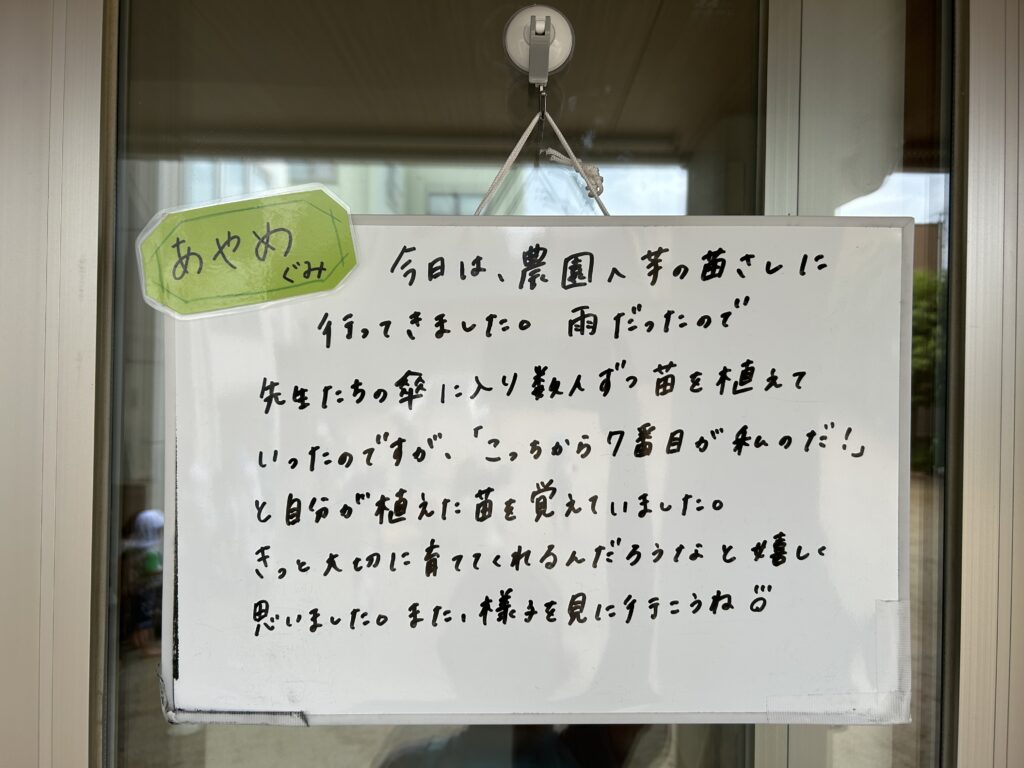 あやめ
ぐみ
今日は、農園へ芋の苗さしに
行ってきました。雨だったので
先生たちの傘に入り数人ずつ苗を植えて
いったのですが、「こっちから7番目が私のだ!」
と自分が植えた苗を覚えていました。
きっと大切に育ててくれるんだろうなと嬉しく
思いました。また、様子を見に行こうね